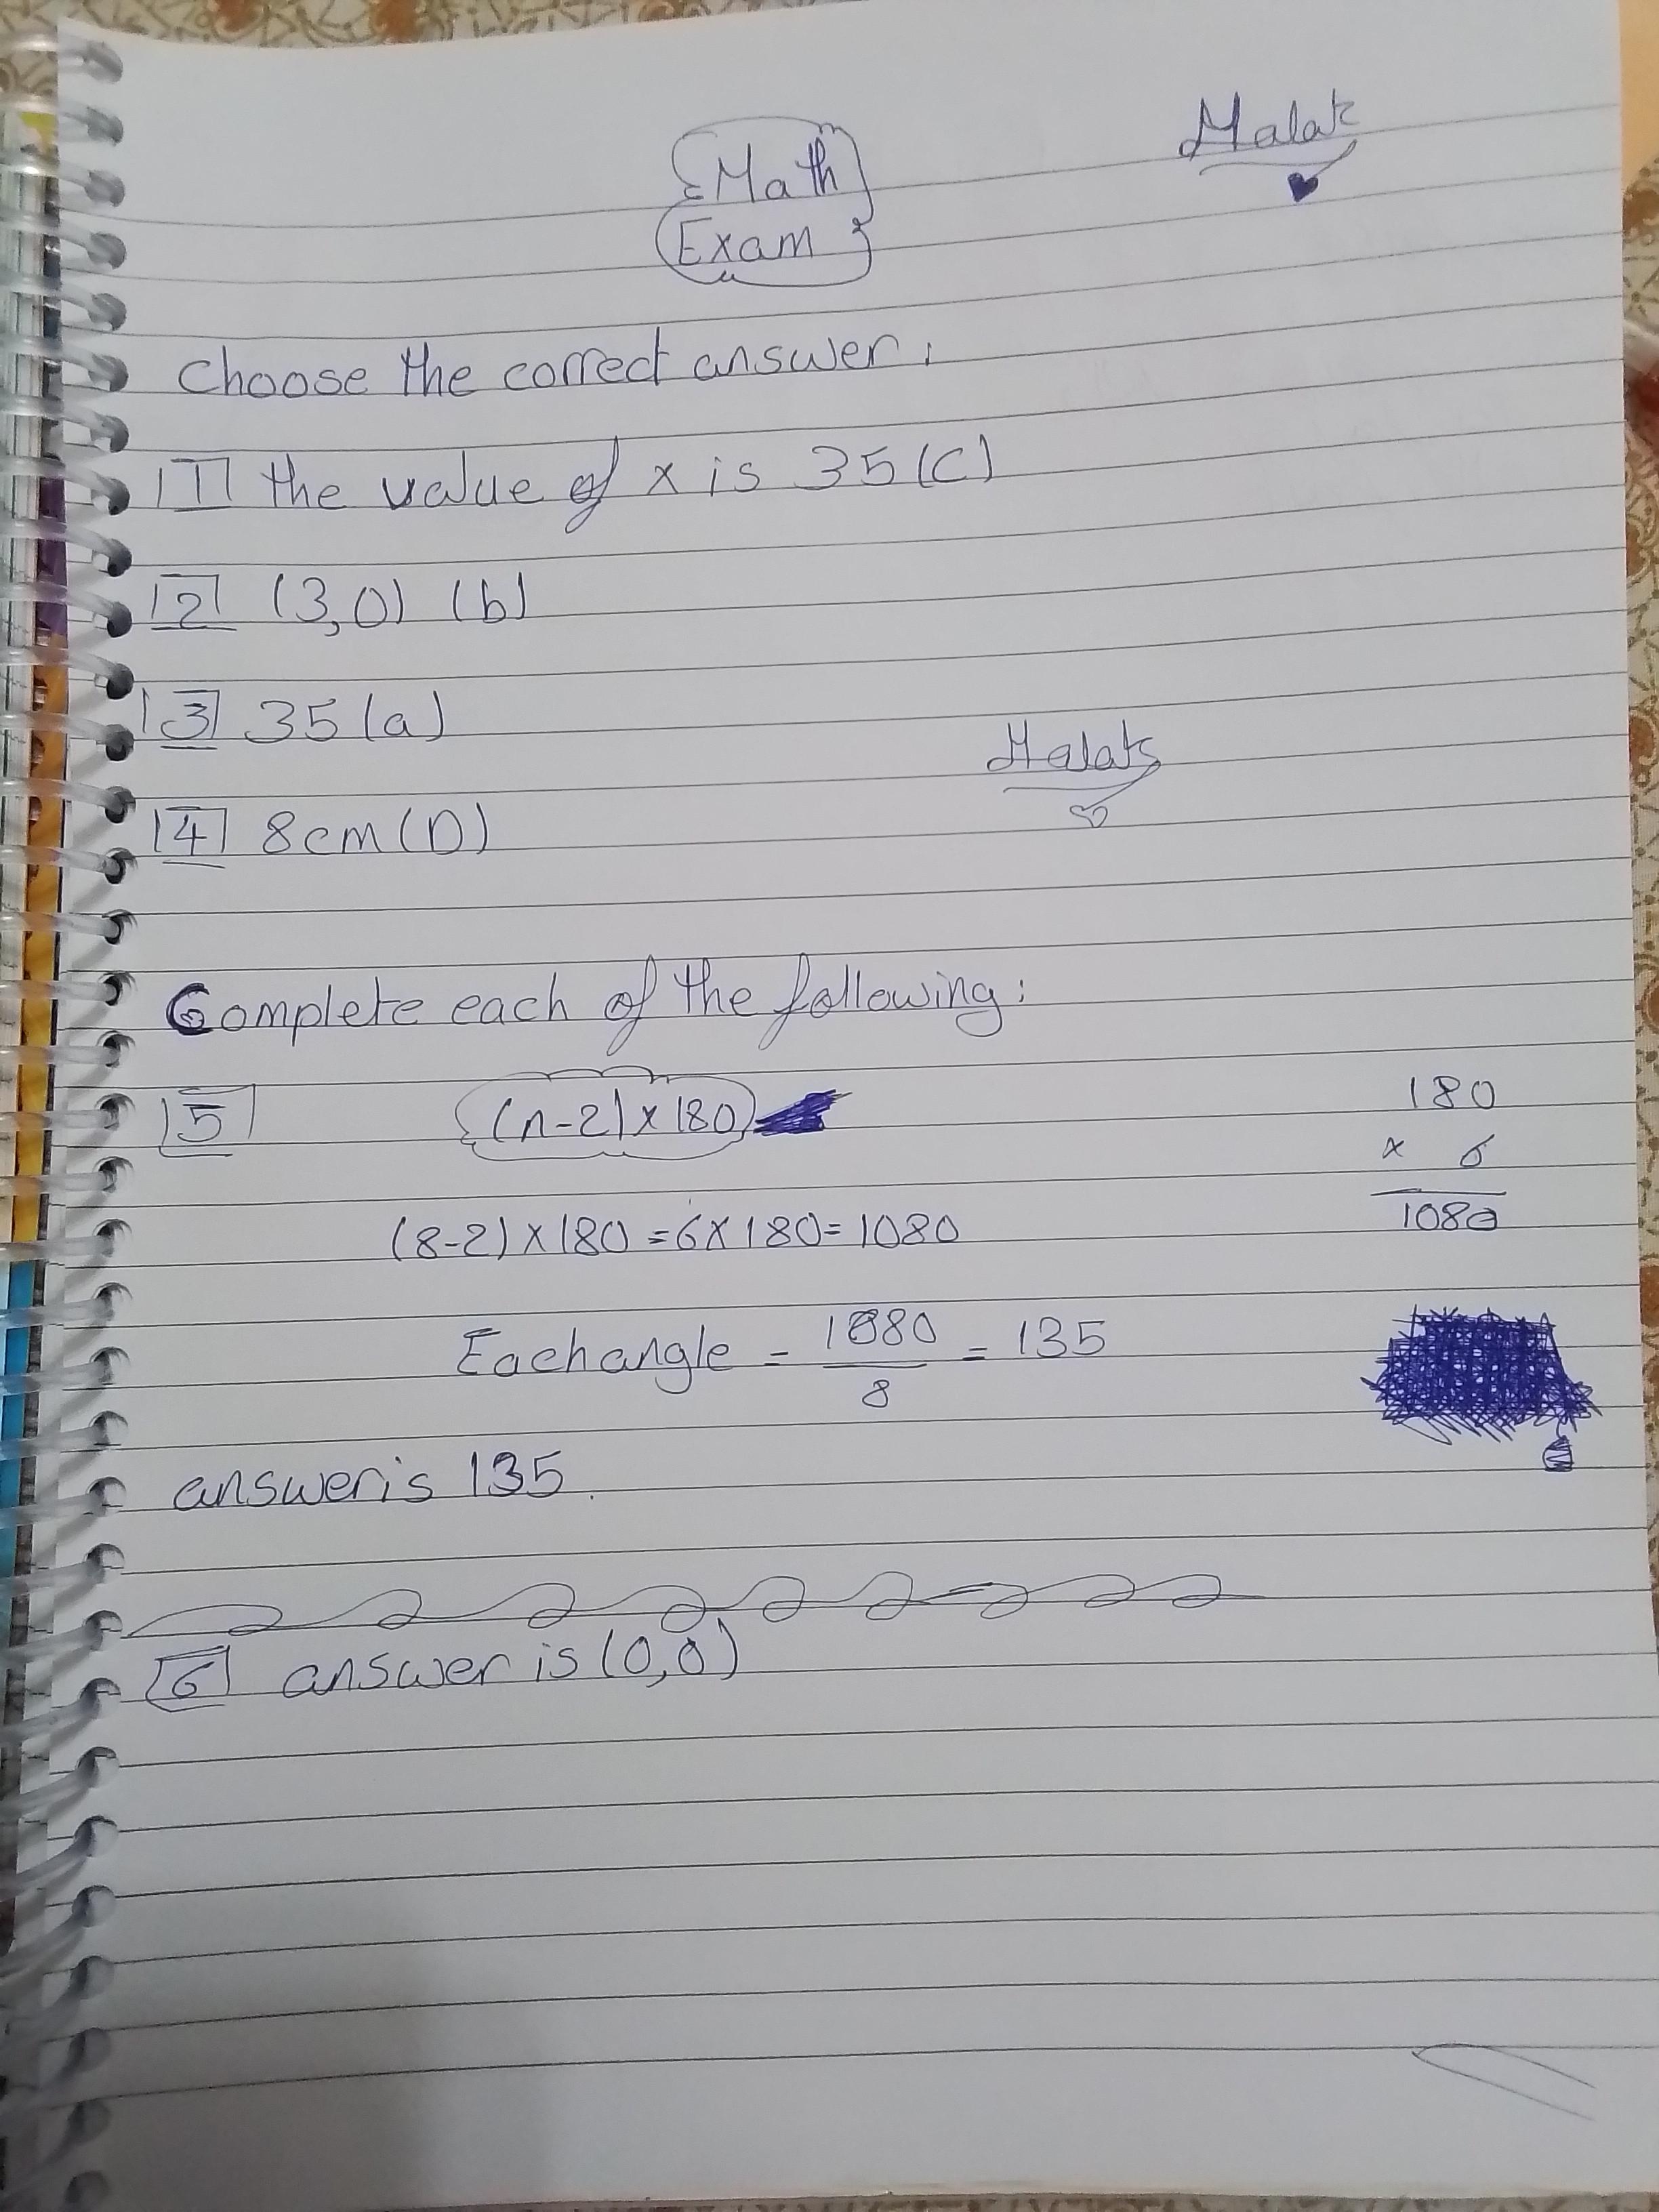 Malak
Math
Exam
Choose the correct answer:
1 the value of x is 35 (C)
2 (3,0) (b)
3 35 (a)
Malak
4 8cm (D)
Complete each of the following:
5 (n-2) x 180
180
x 6
1080
(8-2) x 180 = 6 x 180 = 1080
Each angle = 1080/8 = 135
answer is 135.
6 answer is (0,0)